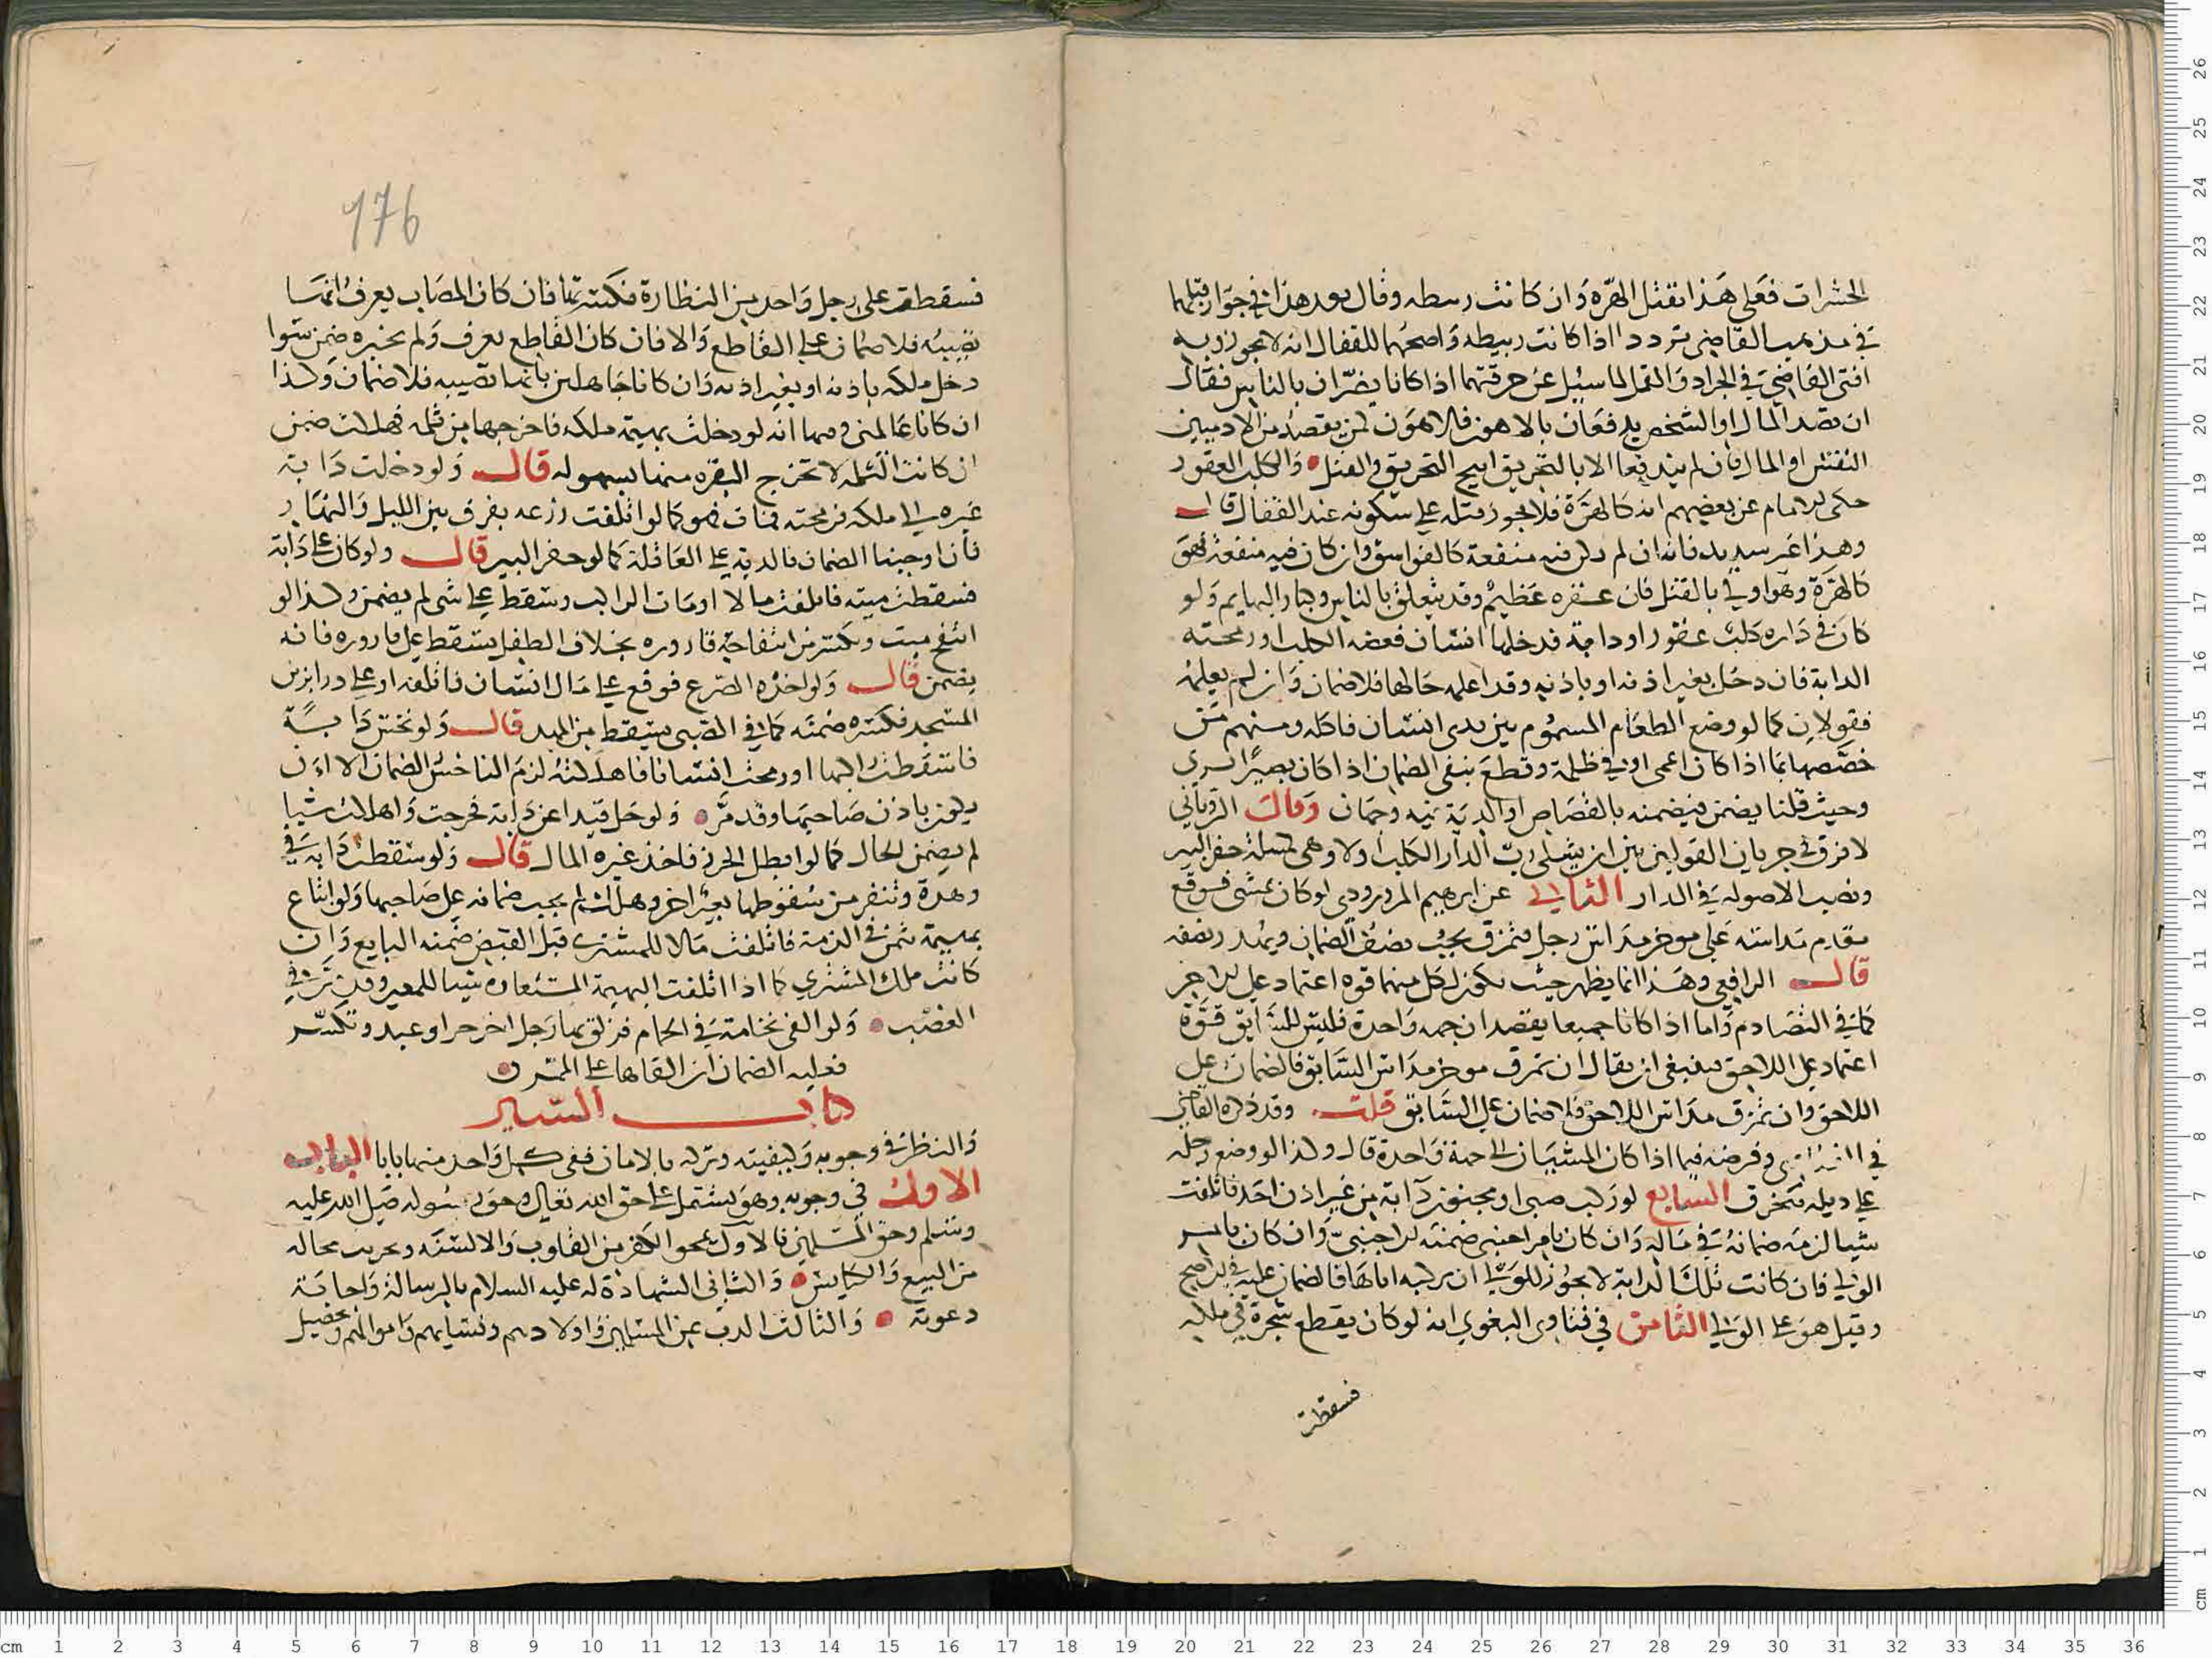 الحشرات فعلى هذا تقتل الهرة وان كانت ربيطه وقال بعد هذا في جواز قتلها
في مذهب القاضي تردد اذا كانت ربيطه واصحهما للقفال انه لا يجوز وبه
افتى القاضي في الجراد والنمل لما سئل عن حرقتهما اذا كانا يضران بالناس فقال
ان قصد المال او الشخص يدفعان بالاهون فالاهون لمن يقصد من الادميين
النفس او المال فان لم يندفعا الا بالتحريق ابيح التحريق والقتل والكلب العقور
حكى الامام عن بعضهم انه كالهرة فلا يجوز قتله على سكونه عند القفال قال
وهذا غير سديد فانه ان لم يكن فيه منفعة كالفواسق وان كان فيه منفعة فهو
كالهرة وهو اولى بالقتل فان عقره عظيم وقد يتعلق بالناس وكبار البهايم ولو
كان في داره كلب عقور او دابة فدخلها انسان فعضه الكلب او رمحته
الدابة فان دخل بغير اذنه او باذنه وقد اعلمه حالها فلا ضمان وان لم يعلمه
فقولان كما لو وضع الطعام المسموم بين يدي انسان فاكله ومنهم من
خصصهما بما اذا كان اعمى او في ظلمة وقطع بنفي الضمان اذا كان بصيرا يرى
وحيث قلنا يضمن فيضمنه بالقصاص او الدية فيه وجهان وقال الروياني
لا فرق في جريان القولين بين ان يشلي رب الدار الكلب اولا وهي كمسئلة حفر البير
ونصب الاحبولة في الدار الثاني عن ابرهيم المروروذي لو كان يمشي فوقع
مقدم مداسه على موخر مداس رجل فتمزق يجب نصف الضمان ويهدر نصفه
قال الرافعي وهذا انما يظهر حيث يكون لكل منهما قوه اعتماد على الاخر
كما في التصادم واما اذا كانا جميعا يقصدان جهه واحدة فليس للسابق قوة
اعتماد على اللاحق فينبغي ان يقال ان تمزق موخر مداس السابق فالضمان على
اللاحق وان تمزق مداس اللاحق فلا ضمان على السابق قلت وقد ذكره القاضي
في وفرضه فيما اذا كان المشيان الى جهة واحدة قال وكذا لو وضع رجله
على ذيله فتخرق السابع لو ركب صبي او مجنون دابة من غير اذن احد فاتلفت
شيا لزمه ضمانه في ماله وان كان بامر اجنبي ضمنه الاجنبي وان كان بامر
الولي فان كانت تلك الدابة لا يجوز للولي ان يركبه اياها فالضمان عليه في الاصح
وقيل هو على الولي الثامن في فتاوى البغوي انه لو كان يقطع شجرة في ملكه
فسقطت
176
فسقطت على رجل واحد من النظارة فكسرتها فان كان المصاب يعرف انها
تصيبه فلا ضمان على القاطع والا فان كان القاطع يعرف ولم يخبره ضمن سوا
دخل ملكه باذنه او بغير اذنه وان كانا جاهلين بانها تصيبه فلا ضمان وكذا
ان كانا عالمين ومنها انه لو دخلت بهيمة ملكه فاخرجها من ثلمه فهلكت ضمن
ان كانت الثلمه لا تخرج البقره منها بسهوله قال ولو دخلت دابة
غيره الى ملكه فرمحته فمات فهو كما لو اتلفت زرعه يفرق بين الليل والنهار
فان اوجبنا الضمان فالدية على العاقلة كما لو حفر البير قال ولو كان على دابة
فسقطت ميته فاتلفت مالا او مات الراكب وسقط على شي لم يضمن وكذا لو
انتفخ ميت وتكسر من انتفاخه قاروره بخلاف الطفل يسقط على قاروره فانه
يضمن قال ولو اخذه الصرع فوقع على مال انسان فاتلفه او على درابزين
المسجد فكسره ضمنه كما في الصبي يسقط من المهد قال ولو نخس دابة
فاسقطت راكبها او رمحت انسانا فاهلكته لزم الناخس الضمان الا ان
يكون باذن صاحبها وقد مر ولو حل قيدا عن دابة فخرجت واهلكت شيا
لم يضمن الحال كما لو ابطل الحرز فاخذ غيره المال قال ولو سقطت دابة في
وهدة وتنفر من سقوطها بعير اخر وهلك لم يجب ضمانه على صاحبها ولو ابتاع
بهيمة بثمن في الذمة فاتلفت مالا للمشتري قبل القبض ضمنه البايع وان
كانت ملك المشتري كما اذا اتلفت البهيمة المستعارة شيا للمعير وقد مر في
الغصب ولو القى نخامة في الحمام فزلق بها رجل اخر حر او عبد وتكسر
فعليه الضمان ان القاها على الممر
كتاب السير
والنظر في وجوبه وكيفيته وتركه بالامان ففي كل واحد منها باب الباب
الاول في وجوبه وهو يشتمل على حق الله تعالى وحق رسوله صلى الله عليه
وسلم وحق المسلمين فالاول محو الكفر من القلوب والالسنه وتخريب محاله
من البيع والكنايس والثاني الشهادة له عليه السلام بالرسالة واجابة
دعوته والثالث الذب عن المسلمين واولادهم ونسايهم واموالهم وتحصيل